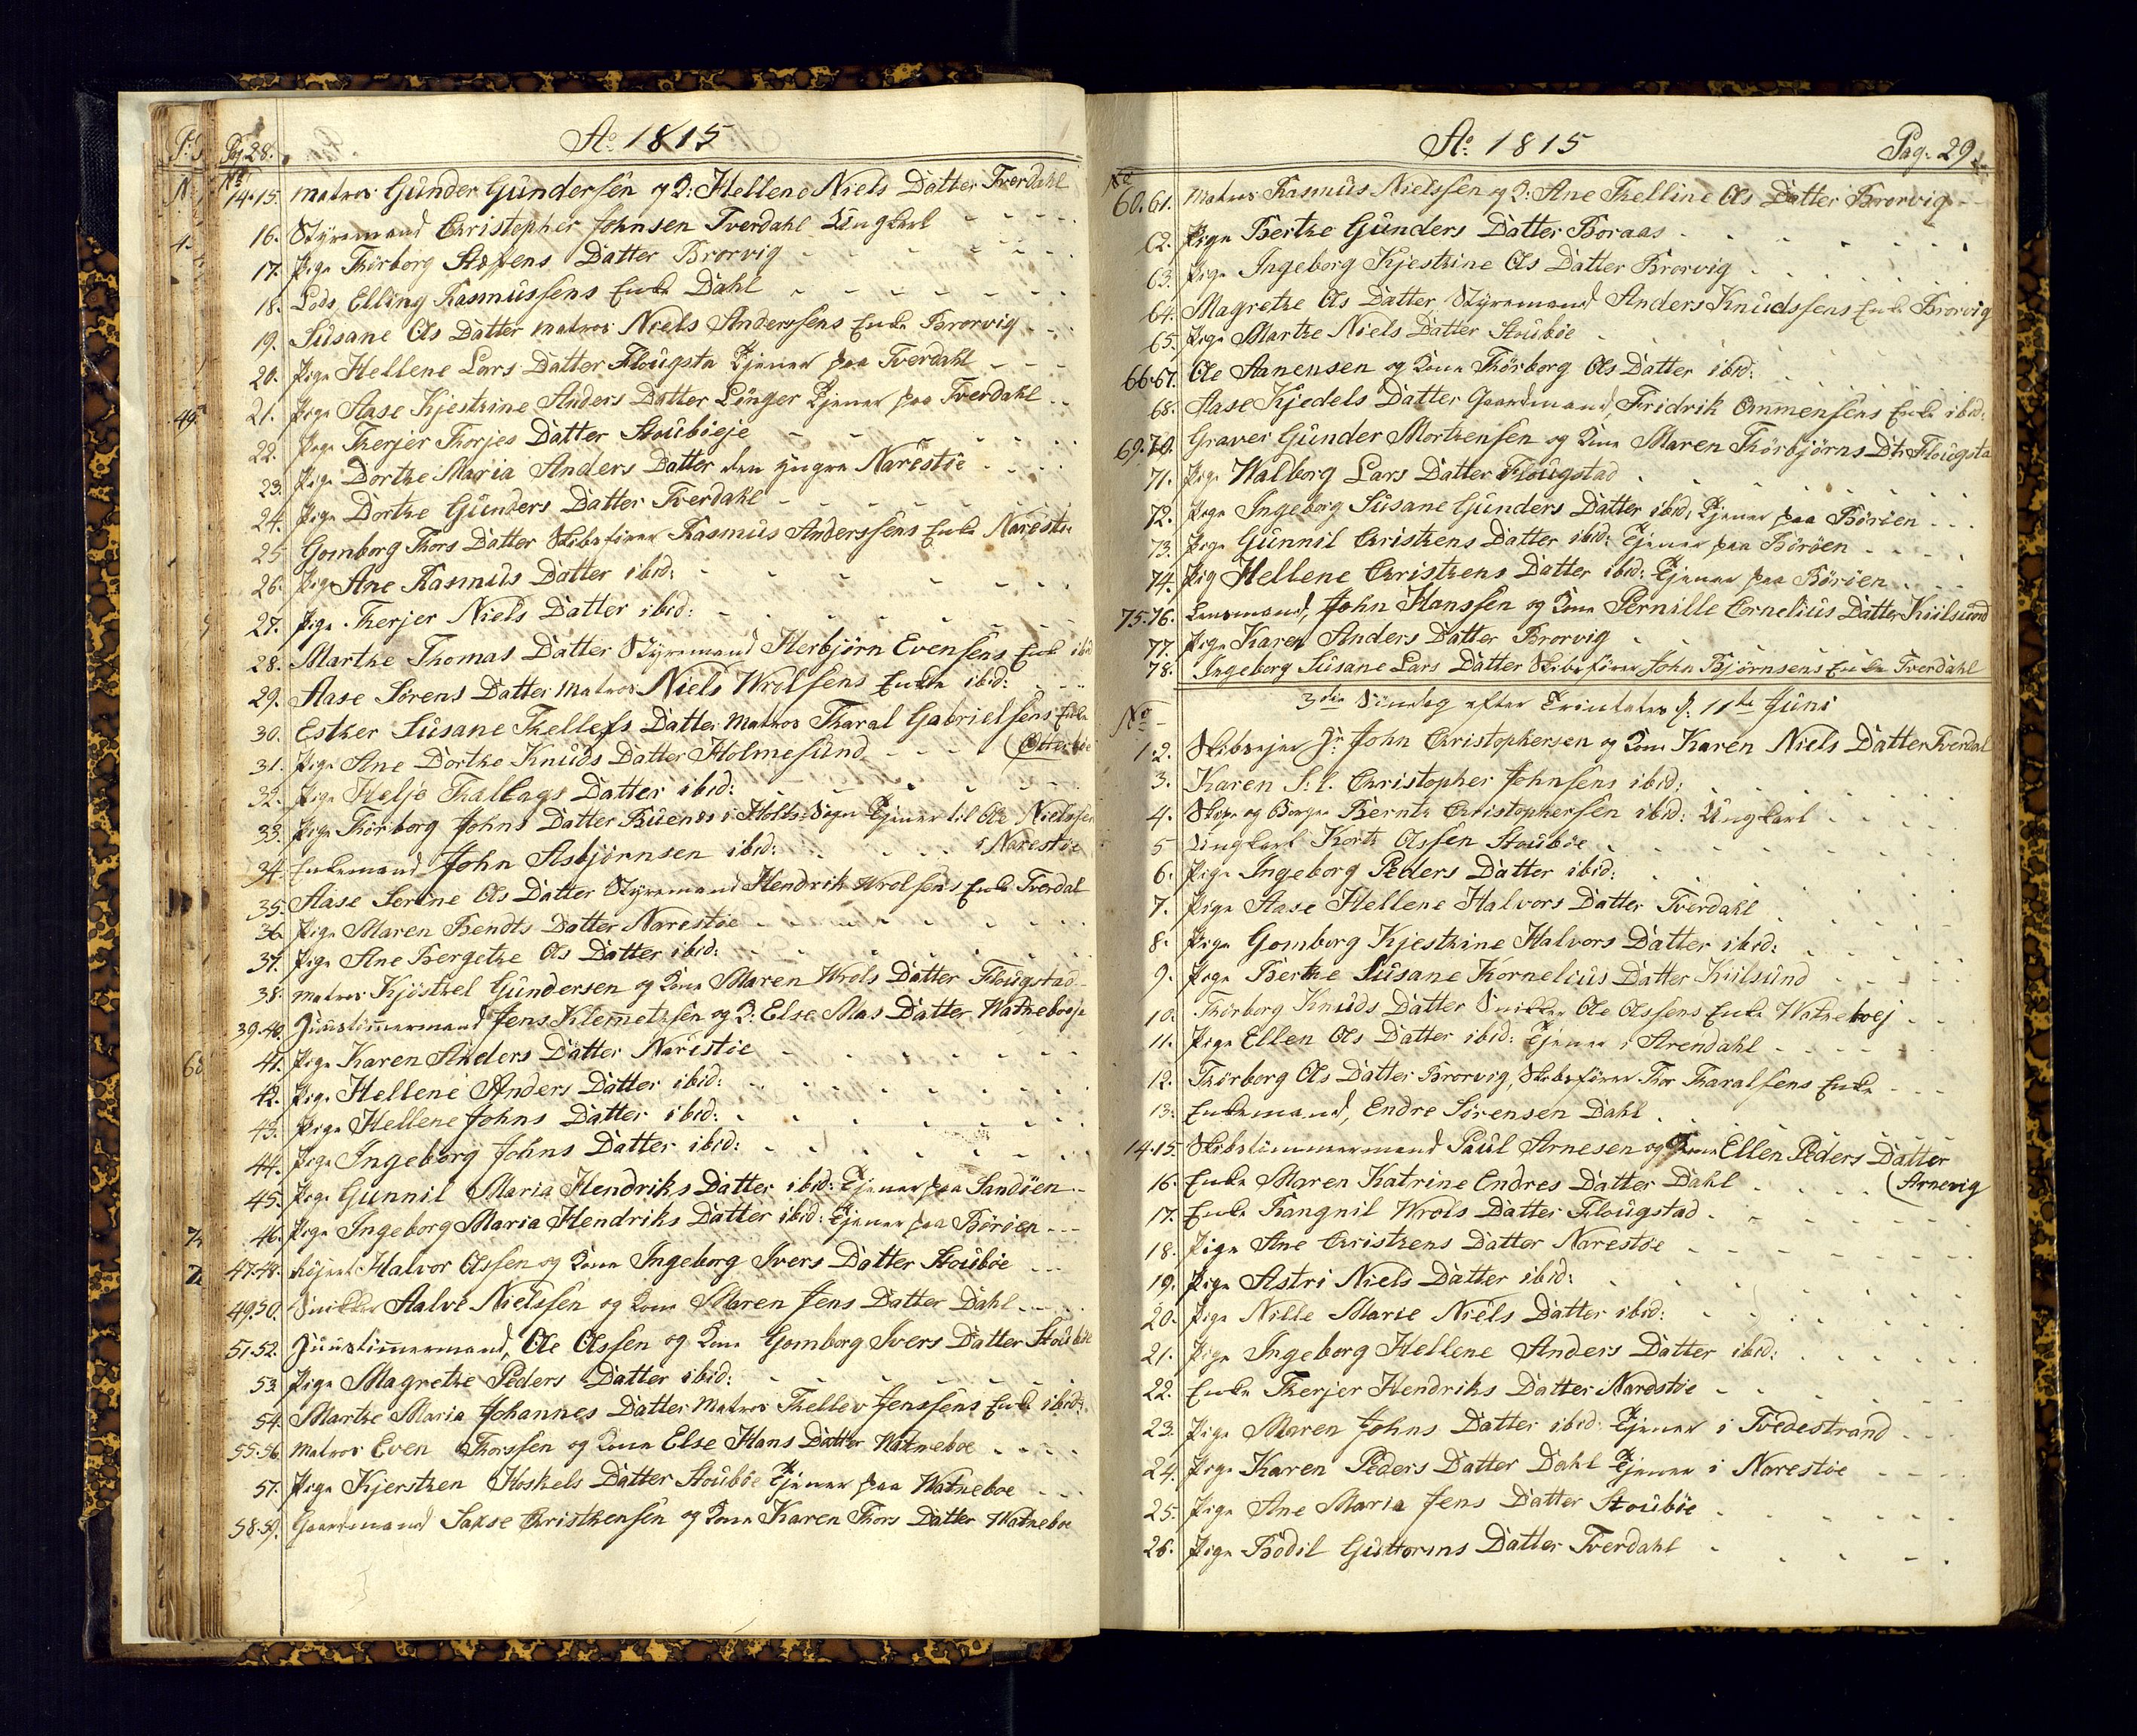 Pag. 28.
Ao 1815
No
14.15. Matros Gunder Gundersen og K: Hellene Niels Datter Tverdahl
16. Styremand Christopher Johnsen Tverdahl Ungkarl
17. Pige Thorborg Stepens Datter Brorvig
18. Lods Elling Rasmussens Enke Dahl
19. Susane Ols Datter Matros Niels Anderssens Enke Brorvig
20. Pige Hellene Lars Datter Flougsta Tjener paa Tverdahl
21. Pige Aase Kjesthine Anders Datter Længer Tjener paa Tverdahl
22. Pige Therjer Thorjes Datter Stoubøeje
23. Pige Dorthe Maria Anders Datter den yngre Narestøe
24. Pige Dorthe Gunders Datter Tverdahl
25. Gomborg Thors Datter Skibsfører Rasmus Anderssens Enke Narestøe
26. Pige Ane Rasmus Datter ibid:
27. Pige Therjer Niels Datter ibid:
28. Marthe Thomas Datter Styremand Herbjørn Evensens Enke ibid
29. Aase Sørens Datter Matros Niels Wrolsens Enke ibid:
30. Esther Susane Thellefs Datter Matros Tharal Gabrielsens Enke
31. Pige Ane Dorthe Knuds Datter Holmesund (Otterbøe
32. Pige Helje Thallags Datter ibid:
33. Pige Thorborg Johns Datter Buenes i Holts-Sogn Tjener til Ole Nielssen
34. Enkemand John Asbjørnsen ibid: i Narestøe
35. Aase Serine Ols Datter Styremand Hendrik Wrolsens Enke Tverdal
36. Pige Maren Bendts Datter Narestøe
37. Pige Ane Bergethe Ols Datter ibid:
38. Matros Kjøsthel Gundersen og Kone Maren Wrols Datter Flougstad
39.40. Huustimmermand Jens Klemetsen og K: Else Mas Datter Watneboeje
41. Pige Karen Anders Datter Narestøe
42. Pige Hellene Anders Datter ibid:
43. Pige Hellene Johns Datter ibid:
44. Pige Ingeborg Johns Datter ibid:
45. Pige Gunnil Maria Hendriks Datter ibid: Tjener paa Sandøen
46. Pige Ingeborg Maria Hendriks Datter ibid: Tjener paa Børøen
47.48. Halvor Olssen og Kone Ingeborg Ivers Datter Stoubøe
49.50. Snikker Aalve Nielssen og Kone Maren Jens Datter Dahl
51.52. Huustimmermand, Ole Olssen og Kone Gomborg Ivers Datter Stoubøe
53. Pige Magrethe Peders Datter ibid:
54. Marthe Maria Johannes Datter Matros Thellev Jenssens Enke ibid:
55.56. Matros Even Thorssen og Kone Else Hans Datter Watneboe
57. Pige Kjersthen Koskels Datter Stoubøe Tjener paa Watneboe
58.59. Gaardmand Saxse Christhensen og Kone Karen Thors Datter Watneboe
Ao 1815
Pag. 29
No
60.61. Matros Rasmus Nielssen og K: Ane Thelline Ols Datter Brorvig
62. Pige Berthe Gunders Datter Boraas
63. Pige Ingeborg Kjesthine Ols Datter Brorvig
64. Magrethe Ols Datter Styremand Anders Knudssens Enke Brorvig
65. Pige Marthe Niels Datter Stoubøe
66.67. Ole Aanensen og Kone Thørborg Ols Datter ibid:
68. Aase Kjedels Datter Gaardmand Fridrik Ommensens Enke ibid:
69.70. Graver Gunder Morthensen og Kone Maren Thorbjørns Dtr Flougsta
71. Pige Walborg Lars Datter Flougstad
72. Pige Ingeborg Susane Gunders Datter ibid: Tjener paa Børøen
73. Pige Gunnil Christhens Datter ibid: Tjener paa Børøen
74. Pig Hellene Christhens Datter ibid: Tjener paa Børøen
75.76. Lensmand, John Hanssen og Kone Pernille Cornelius Datter Kiilsund
77. Pige Karen Anders Datter Brorvig
78. Ingeborg Susane Lars Datter Skibsfører John Bjørnsens Enke Tverdahl
3die Søndag efter Trinitatis d: 11te Juni
No
1.2. Skibsejer Hr John Christophersen og Kone Karen Niels Datter Tverdal
3. Karen S:l. Christopher Johnsens ibid:
4. Skipr og Borger Bernth Christophersen ibid: Ungkarl
5 Ungkarl Korth Olssen Stoubøe
6. Pige Ingeborg Peders Datter ibid:
7. Pige Aase Hellene Halvors Datter Tverdahl
8. Pige Gomborg Kjesthine Halvors Datter ibid:
9. Pige Berthe Susane Kornelius Datter Kiilsund
10. Thørborg Knuds Datter Snikker Ole Olssens Enke Watneboej
11. Pige Ellen Ols Datter ibid: Tjener i Arendahl
12. Thørborg Ols Datter Brorvig, Skibsfører Thor Tharalsens Enke
13. Enkemand, Endre Sørensen Dahl
14.15. Skibstimmermand Paul Arnesen og Kone Ellen Peders Datter
16. Enke Maren Katrine Endres Datter Dahl (Arnevig
17. Enke Rangnil Wrols Datter Flougstad
18. Pige Ane Christhens Datter Narestøe
19. Pige Astri Niels Datter ibid:
20. Pige Nille Marie Niels Datter ibid:
21. Pige Ingeborg Hellene Anders Datter ibid:
22. Enke Therjer Hendriks Datter Narestøe
23. Pige Maren Johns Datter ibid: Tjener i Tvedestrand
24. Pige Karen Peders Datter Dahl Tjener i Narestøe
25. Pige Ane Maria Jens Datter Stoubøe
26. Pige Bodil Guttorms Datter Tverdahl